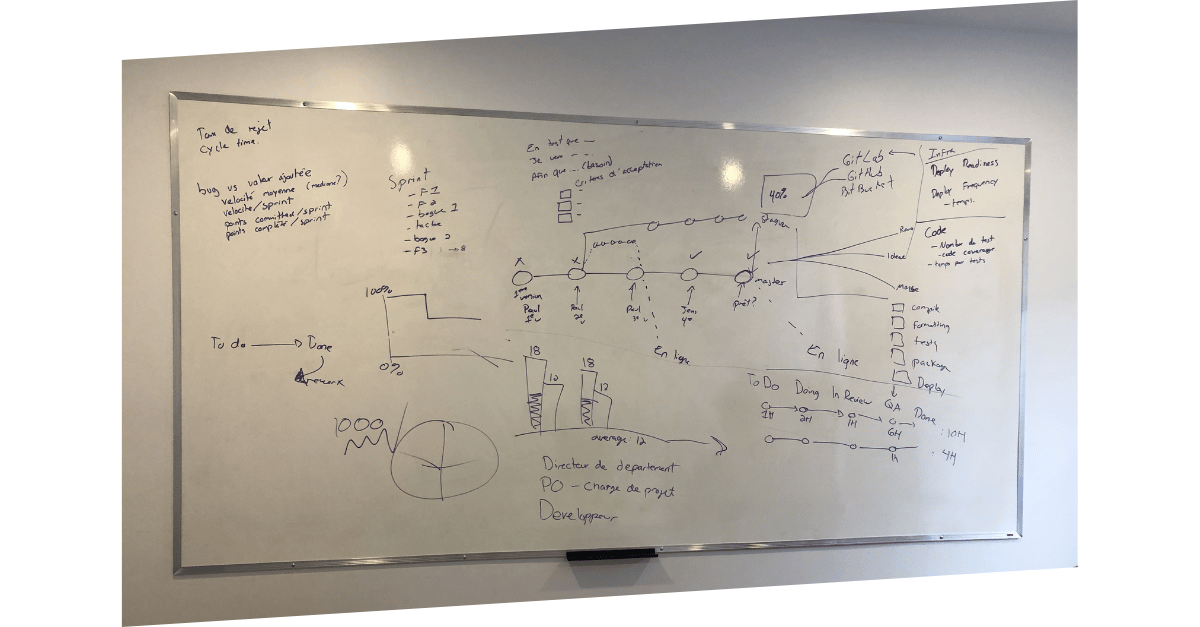 Taux de rejet
Cycle time.
bug vs valeur ajoutée
velocité moyenne (mediane?)
velocite/sprint
points committed/sprint
points complété/sprint
Sprint
- F1
- F2
- bogue 1
- tache
- bogue 2
- F3 1 → 8
En tant que —
Je veux - -
Afin que - - (besoin)
Criteres d'acceptation
GitLab
GitHub
BitBucket
40%
Infra
Deploy Readiness
Deploy Frequency
- temps.
Code
- Nombre de test
- code coverage
- temps par tests
Ideal
master
version
Paul
Paul
Paul
Jean
prêt?
En ligne
En ligne
compile
formatting
tests
package
Deploy
100%
0%
To do → Done
rework
18
12
18
12
average: 12
To Do Doing In Review QA Done
1H 2H 1H 6H : 10H
1H : 4H
1000
Directeur de departement
PO - charge de projet
Developpeur